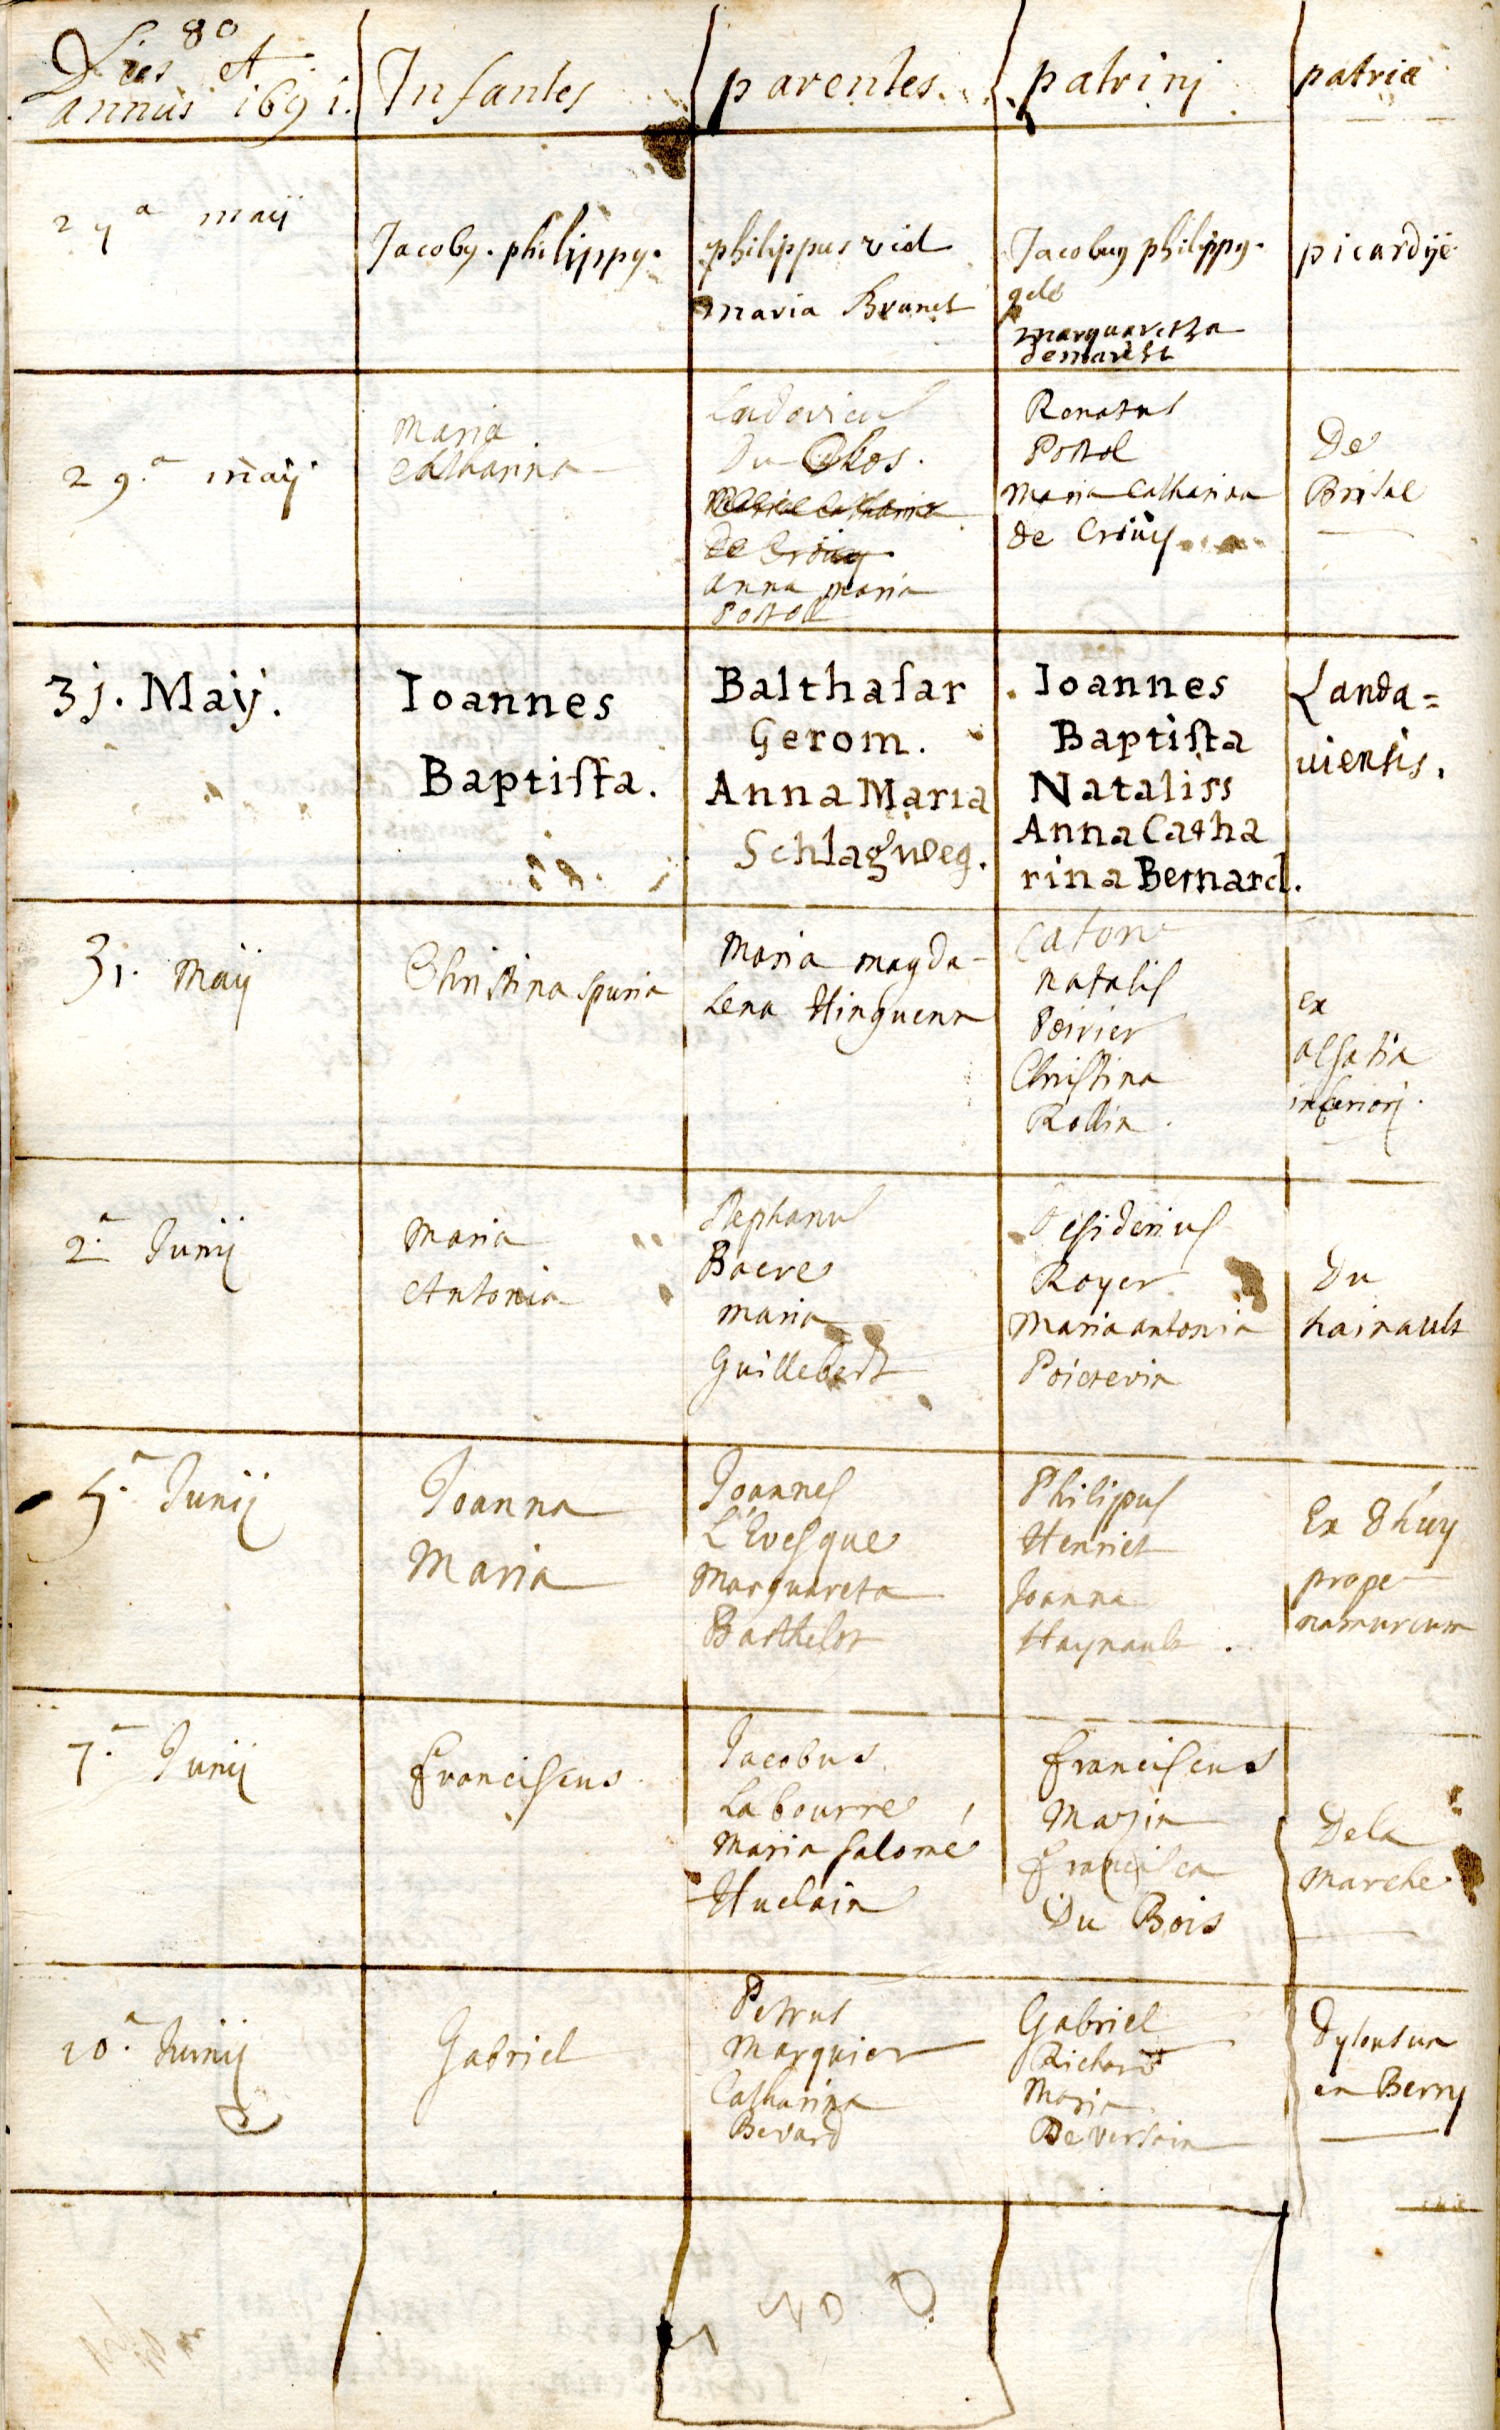 80
Dies et
annus 1691.
Infantes
parentes.
patrinj
patriæ
27a maij
Jacobq. philippq.
philippus vid
maria Brunet
Jacobuq philippq.
gele
marguaretha
demarest
picardije
29.a maij
Maria
Catharina
Ludovicus
Du
Maria Catharina
de Croüy
anna maria
Postel
Renatus
Postel
Maria Catharina
de Croüy
De
Brisac
31. Maij.
Ioannes
Baptista.
Balthasar
Gerom.
Anna Maria
Schlagweg.
Ioannes
Baptista
Nataliss
Anna Catha
rina Bernard.
Landa=
uiensis.
31. Maij
Christina spuria
Maria magda-
Lena Hinguena
Caton
natalis
Poirier
Christina
Rollin.
ex
alsatia
inferiorj.
2.a Junij
Maria
Antonia
Stephanus
Bacre
maria
Guillebert
Desiderius
Royer
Maria antonia
Poictevin
Du
hainault
5.a Junij
Joanna
Maria
Joannes
L'Evesque
Marguareta
Barthelot
Philipus
Henriet
Joanna
Haynault.
Ex Dhuy
prope
namurcum
7.a Junij
franciscus
Jacobus
Labourre
Maria Salomé
Huclain
franciscus
Marin
francisca
Du Bois
Dela
marche
10.a Junij
Gabriel
Petrus
Marquier
Catharina
Bevard
Gabriel
Richard
Maria
De Versain
en Berry